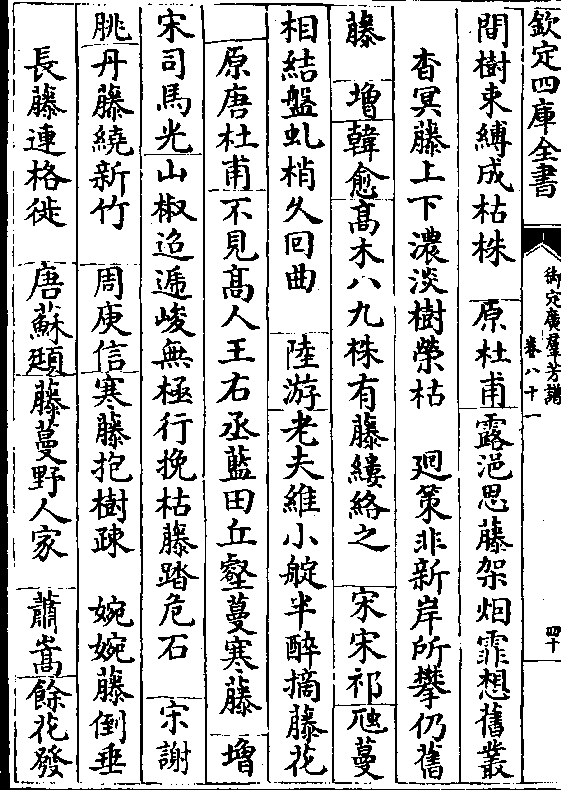 欽定四庫全書
御定廣羣芳譜
卷八十一
四十
間樹束縛成枯株　原杜甫露浥思藤架烟霏想舊叢
杳冥藤上下濃淡樹榮枯　廻策非新岸所攀仍舊
藤　增韓愈高木八九株有藤縷絡之　宋宋祁蔓
相結盤虬梢久回曲　陸游老夫維小艇半醉摘藤花
原唐杜甫不見高人王右丞藍田丘壑蔓寒藤　增
宋司馬光山椒迢遞峻無極行挽枯藤踏危石　宋謝
朓丹藤繞新竹　周庚信寒藤抱樹疎　婉婉藤倒垂
長藤連格徙　唐蘇頲藤蔓野人家　蕭嵩餘花發